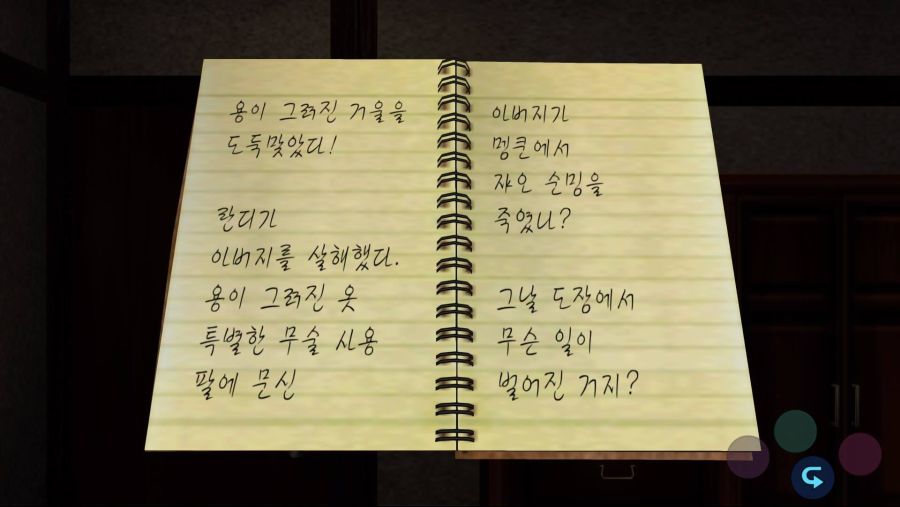 용이 그려진 거울을
도둑맞았다!
란디가
아버지를 살해했다.
용이 그려진 옷
특별한 무술 사용
팔에 문신
아버지가
멩쿤에서
쟈오 순밍을
죽였나?
그날 도장에서
무슨 일이
벌어진 거지?